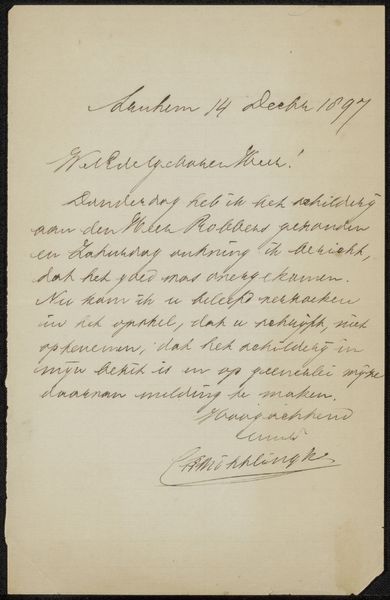 Arnhem 14 Decbr 1897
WelEdelgeboren Heer!
Donderdag heb ik het schilderij
aan den Heer Robbers gezonden
en Zaturdag ontving ik bericht,
dat het goed was overgekomen.
Nu kom ik u beleefd verzoeken
in het opstel, dat u schrijft, niet
optenemen, dat het schilderij in
mijn bezit is en op geenerlei wijze
daarvan melding te maken.
Hoogachtend